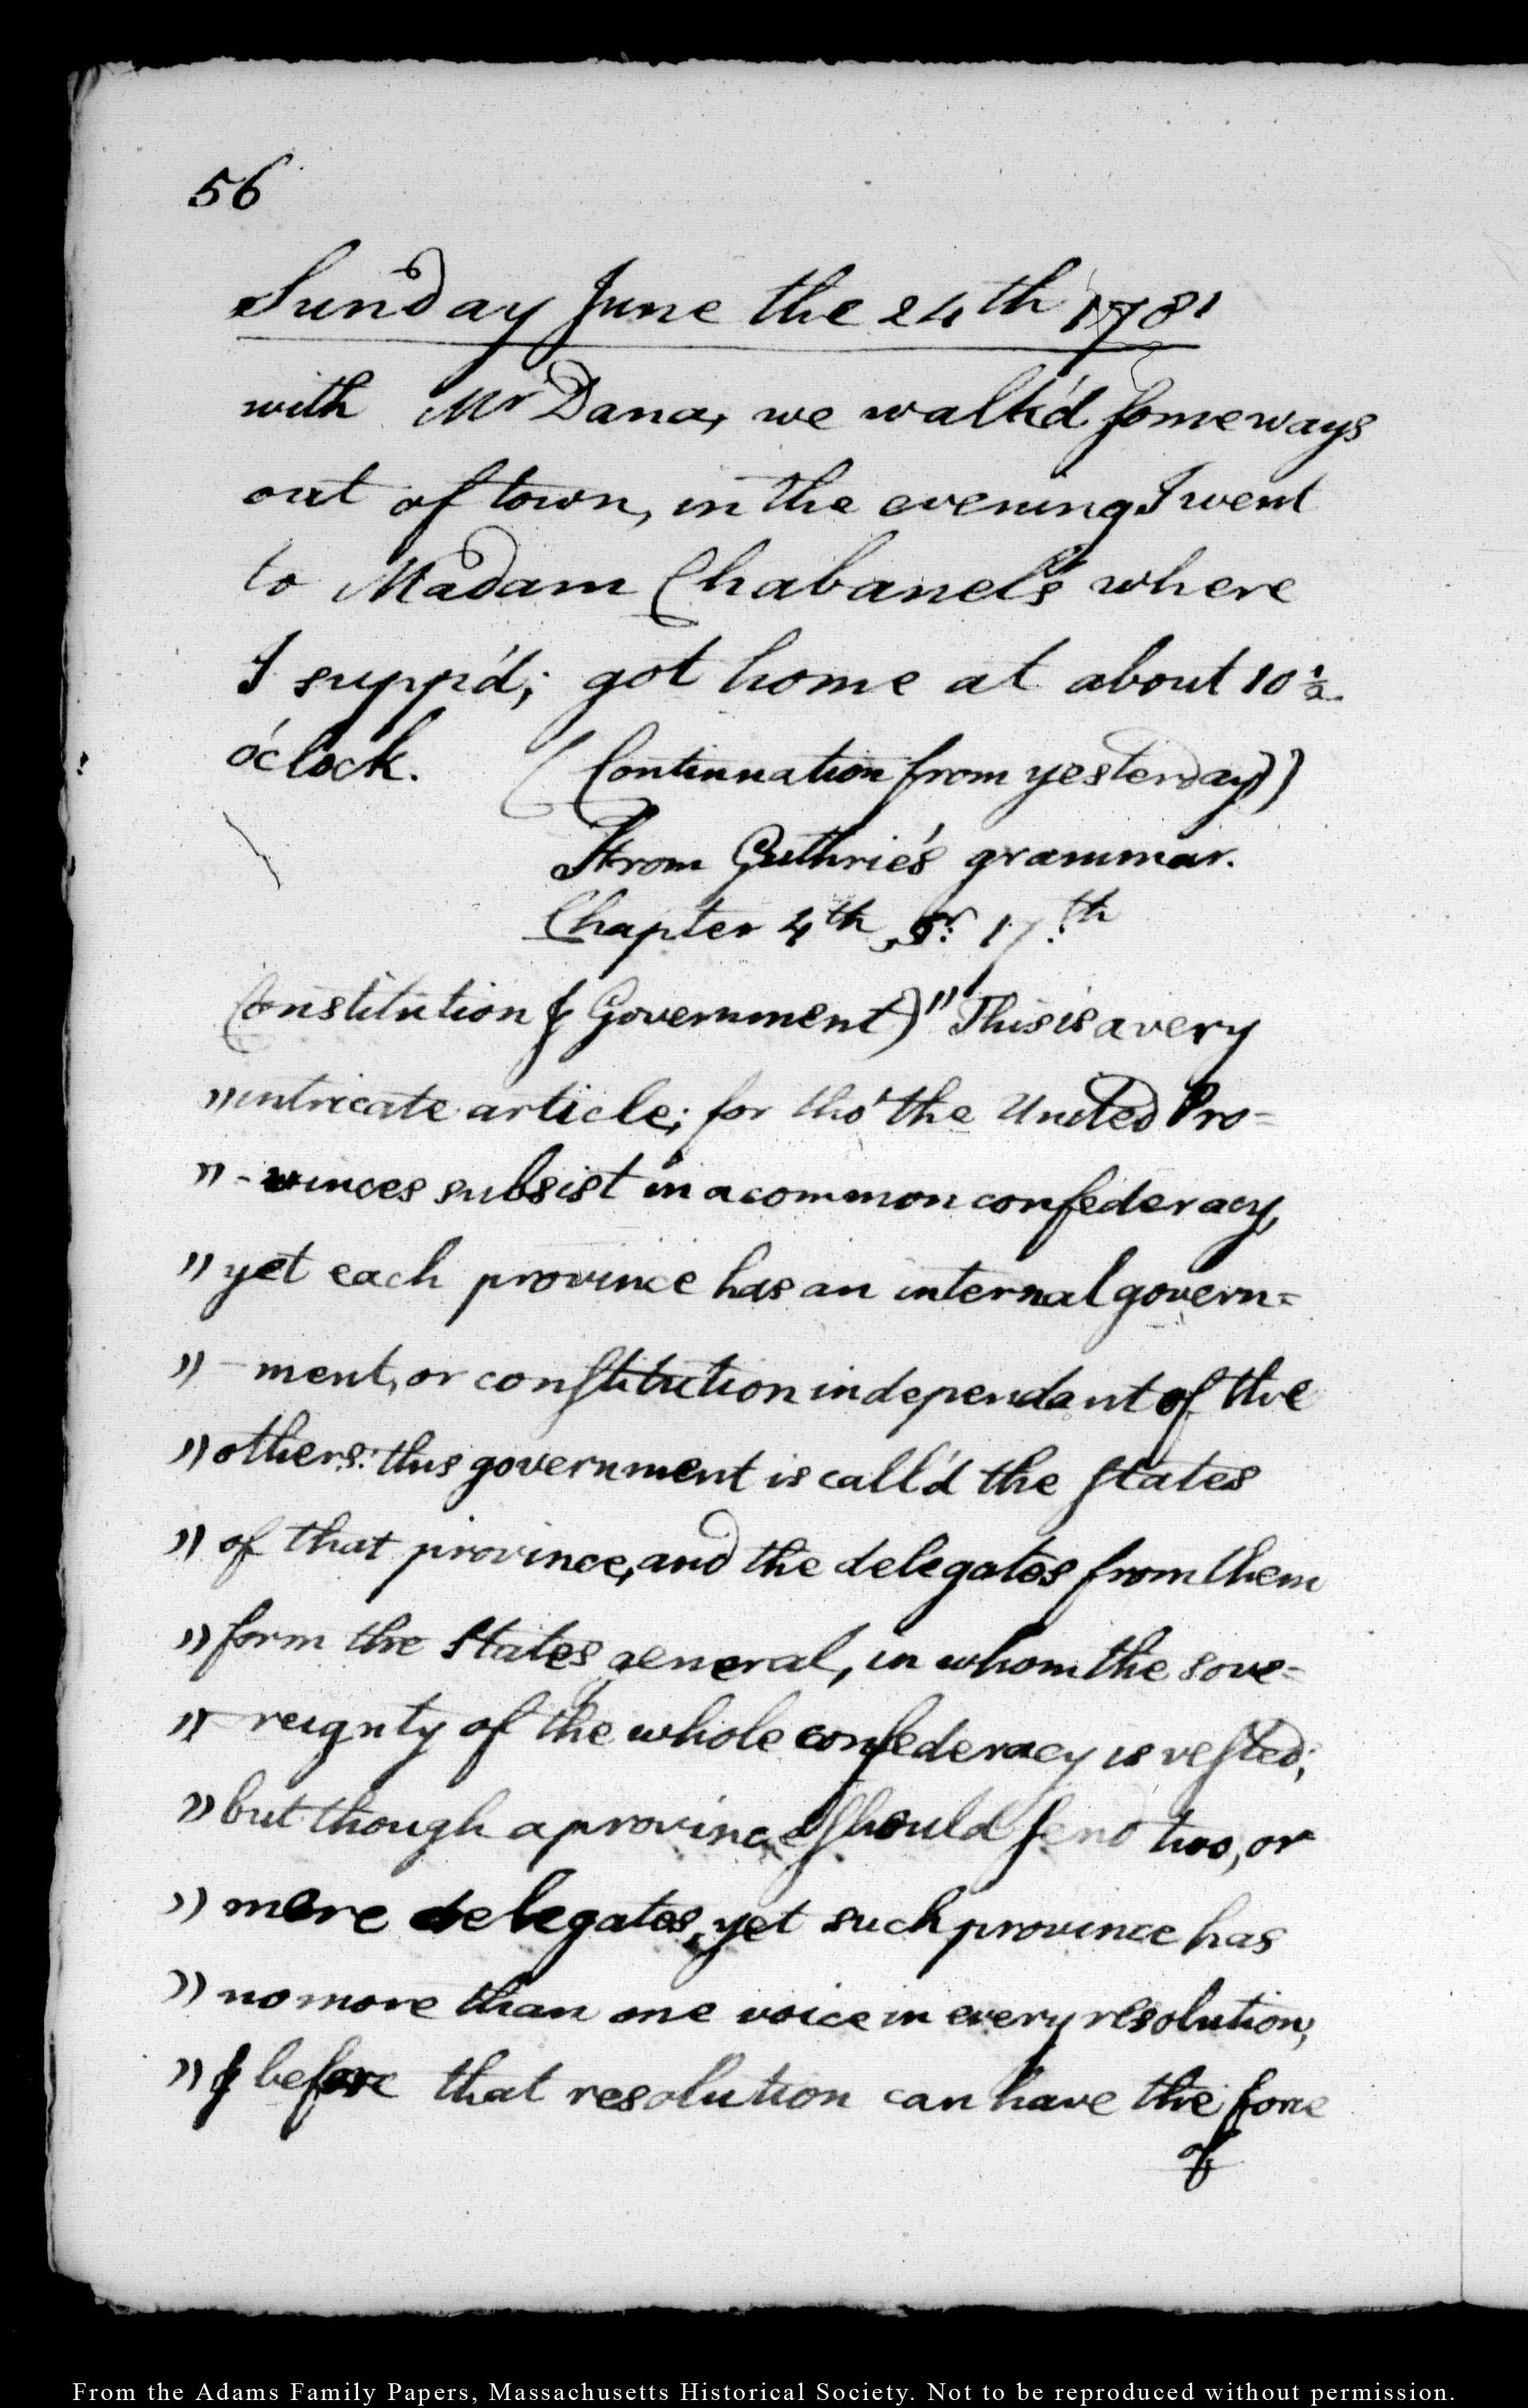 56
Sunday June the 24th 1781
with Mr Dana, we walk'd someways
out of town, in the evening I went
to Madam Chabanel's where
I supp'd; got home at about 10 1/2
o'clock. (Continuation from yesterday))
From Guthrie's grammar.
Chapter 4th, 17th
Constitution & Government) "This is a very
"intricate article; for tho' the United Pro=
"-vinces subsist in a common confederacy,
"yet each province has an internal govern=
"-ment, or constitution independant of the
"others: this government is call'd the states
"of that province, and the delegates from them
"form the States general, in whom the sove=
"-reignty of the whole confederacy is vested;
"but though a province should send two, or
"more delegates, yet such province has
"no more than one voice in every resolution;
"& before that resolution can have the force
of
From the Adams Family Papers, Massachusetts Historical Society. Not to be reproduced without permission.